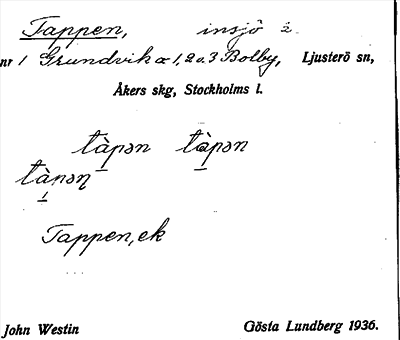 Tappen, insjö 2
nr 1 Grundvik o 1, 2 o. 3 Bolby, Ljusterö sn,
Åkers skg, Stockholms l.
tàpən tàpən
tàpəɳ
Tappen, ek
John Westin Gösta Lundberg 1936.